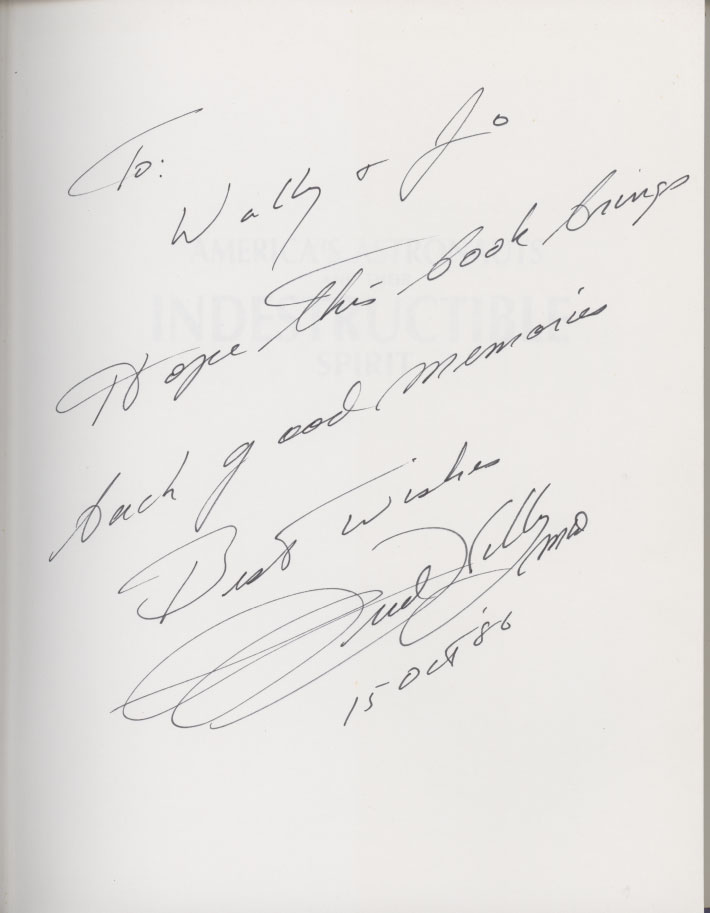 To:
Wally & Jo
Hope this book brings
back good memories
Best Wishes
Fred Kelly MD
15 Oct '86
AMERICA'S ASTRONAUTS
INDESTRUCTIBLE
SPIRIT